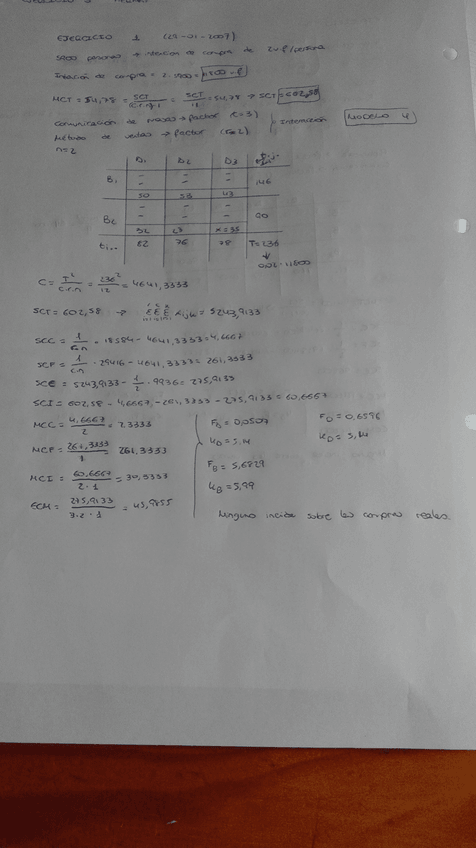 EJERCICIO 1 (29-01-2007)
5900 personas → intención de compra de 2 uf/persona
Intención de compra = 2·5900 = 11800 uf
MCT = 54,78 = SCT/(c·r·n-1) = SCT/11 = 54,78 → SCT = 602,58
Comunicación de → factor (c=3)
Método de ventas → factor (r=2) } Interacción MODELO 4
n=2
D1 D2 D3
B1 - - -
- - - 146
50 53 43
B2 - - -
- - - 90
32 23 x=35
t.j.. 82 76 78 T=236
↓
0,02·11800
C = T²/(c·r·n) = 236²/12 = 4641,3333
SCT = 602,58 → ΣΣΣ xijk² = 5243,9133
SCC = 1/(r·n) · 18584 - 4641,3333 = 4,6667
SCF = 1/(c·n) · 29416 - 4641,3333 = 261,3333
SCE = 5243,9133 - 1/2 · 9936 = 275,9133
SCI = 602,58 - 4,6667 - 261,3333 - 275,9133 = 60,6667
MCC = 4,6667/2 = 2,3333
MCF = 261,3333/1 = 261,3333
MCI = 60,6667/(2·1) = 30,3333
ECM = 275,9133/(3·2·1) = 45,9855
FD = 0,0507
KD = 5,14
FB = 5,6829
KB = 5,99
FD = 0,6596
KD = 5,14
Ninguno incide sobre las compras reales.